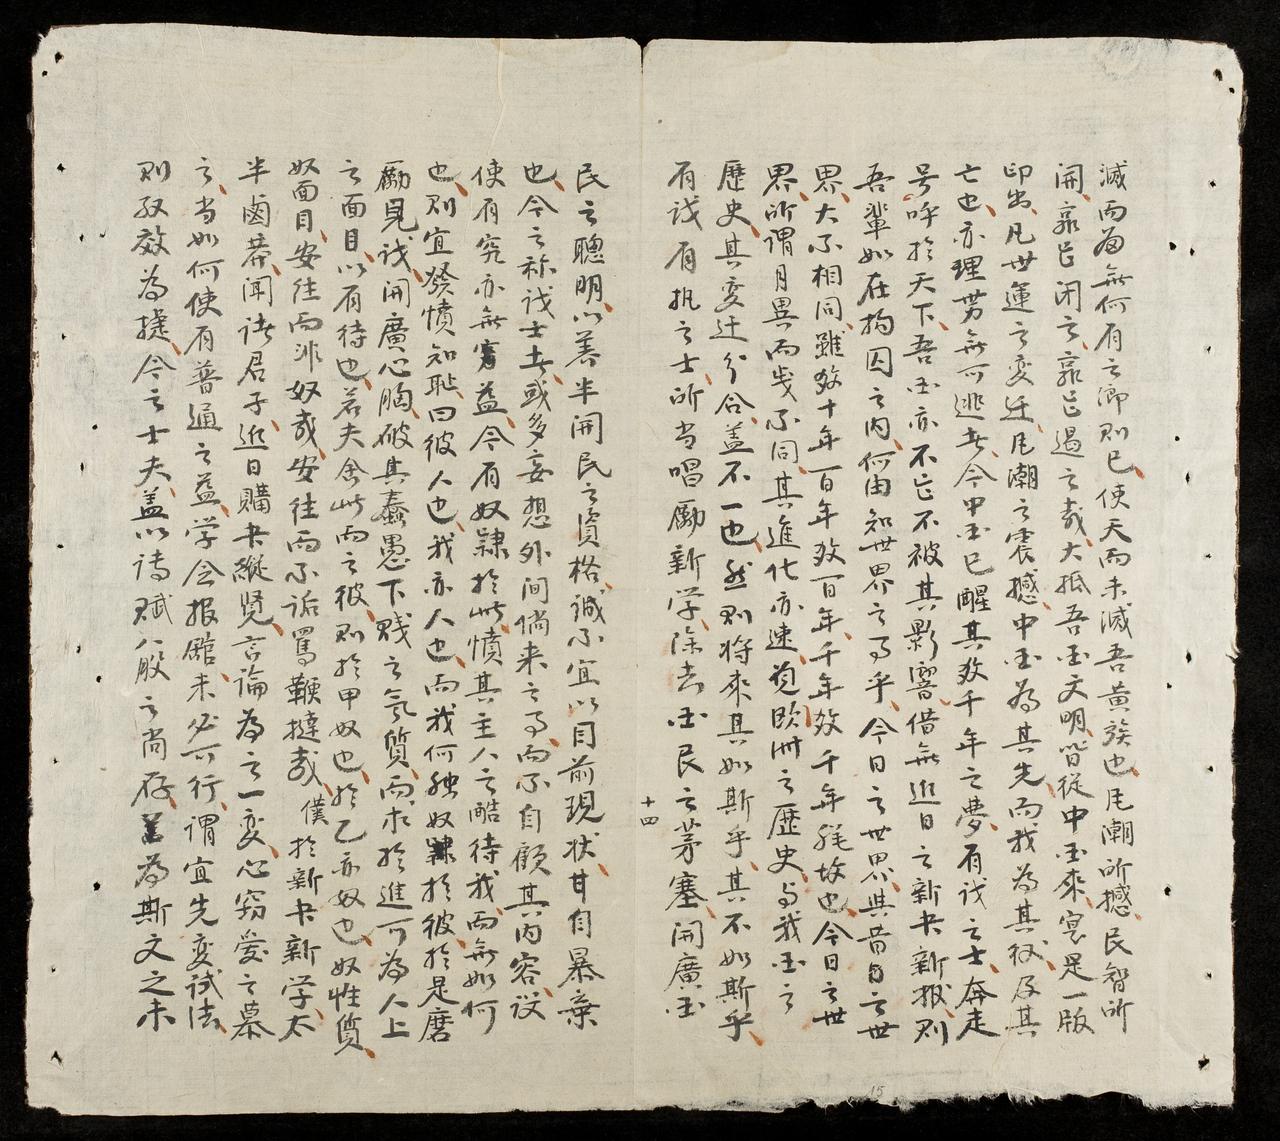 滅而為無何有之鄉則已使天而未滅吾黃族也風潮所撼民智所
開孰巨闭之孰巨遏之哉大抵吾国文明皆從中国來寔是一版
印出凡世運之变迁风潮之震撼中国為其先而我為其後及其
亡也亦理势無可逃者今中国已醒其数千年之夢有識之士奔走
号呼於天下吾国亦不忘不被其影響借無近日之新书新报則
吾輩如在拘囚之内何由知世界之事乎今日之世界與昔日之世
界大不相同雖数十年百年数百年千年数千年殊故也今日之世
界所謂月異而歲不同其進化亦速覓欧洲之歷史与我国之
歷史其变迁分合盖不一也然則将來其如斯乎其不如斯乎
有識有执之士所当唱勵新学除去国民之茅塞開廣国
十四
民之聰明以養半開民之資格誠不宜以目前現状甘自暴棄
也今之称識士者或多妄想外间倘来之事而不自顧其内容设
使有究亦無寔益今有奴隸於此憤其主人之酷待我而無如何
也則宜發憤知恥曰彼人也我亦人也而我何独奴隸於彼於是磨
勵見識開廣心胸破其蠢愚下賤之氣質而求於進可為人上
之面目以有待也若夫舍此而之彼則於甲奴也於乙亦奴也奴性質
奴面目安往而非奴哉安往而不詬罵鞭撻哉僕於新书新学太
半鹵莽闻諸君子近日購书縱览言論為之一变心窃爱之慕
之当如何使有普通之益学会报館未必可行謂宜先变試法
則収效為捷今之士夫盖以诗赋八股之尚存 為斯文之未
15